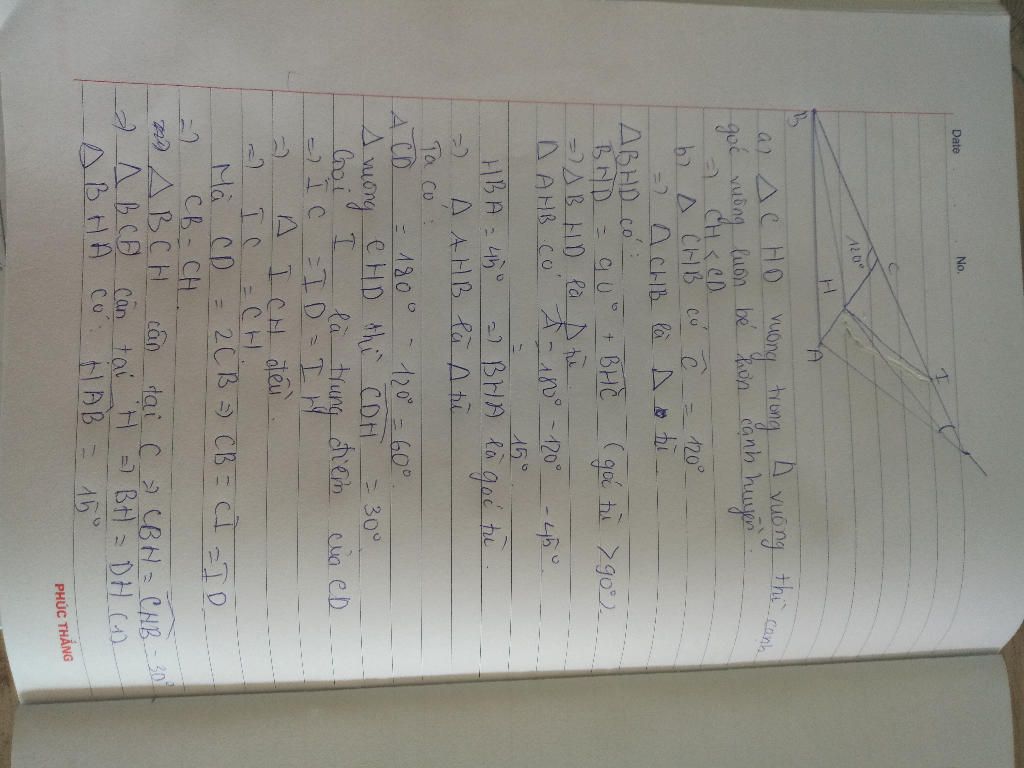 Date
No.
B
C
120°
H
A
I
a) Δ CHD vuông trong Δ vuông thì cạnh
góc vuông luôn bé hơn cạnh huyền.
=> CH < CD
b) Δ CHB có C = 120°
=> Δ CHB là Δ tù.
ΔBHD có:
BHD = 90° + BHC (góc tù > 90°)
=> Δ BHD là Δ tù.
Δ AHB có A = 180° - 120° - 45°
= 15°
HBA = 45° => BHA là góc tù.
=> Δ AHB là Δ tù
Ta có:
ACD = 180° - 120° = 60°
Δ vuông CHD thì CDH = 30°
Gọi I là trung điểm của CD
=> IC = ID = IH
=> Δ ICH đều.
=> IC = CH.
Mà CD = 2CB => CB = CI = ID
=> CB = CH.
=> Δ BCH cân tại C => CBH = CHB = 30°
=> Δ BCD cân tại H => BH = DH (1)
Δ BHA có: HAB = 15°
PHÚC THẮNG